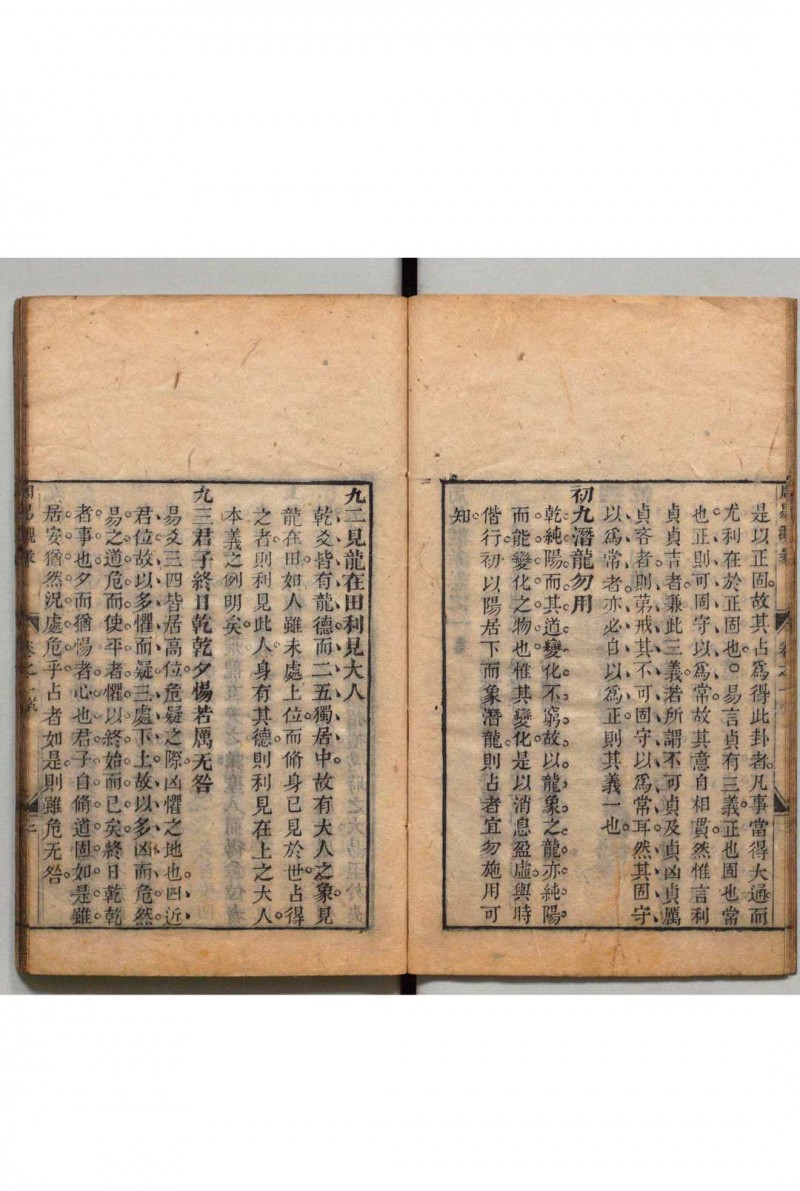 是以正固故其占爲得此卦者凡事當得大通而
尤利在於正固也○易言貞有三義正也固也常
也正則可固守以爲常故其意自相貫然惟言利
貞貞吉者兼此三義若所謂不可貞及貞凶貞厲
貞吝者則第戒其不可固守以爲常耳然其固守
以爲常者亦必自以爲正則其義一也
初九潛龍勿用
乾純陽而其道變化不窮故以龍象之龍亦純陽
而能變化之物也惟其變化是以消息盈虛與時
偕行初以陽居下而象潛龍則占者宜勿施用可
知
九二見龍在田利見大人
乾爻皆有龍德而二五獨居中故有大人之象見
龍在田如人雖未處上位而脩身已見於世占得
之者則利見此人身有其德則利見在上之大人
本義之例明矣
九三君子終日乾乾夕惕若厲无咎
易爻三四皆居高位危疑之際凶懼之地也四近
君位故以多懼而疑三處下上故以多凶而危然
易之道危而使平者懼以終始而已矣終日乾乾
者事也夕而猶惕者心也君子自脩道固如是雖
居安猶然況處危乎占者如是則雖危无咎